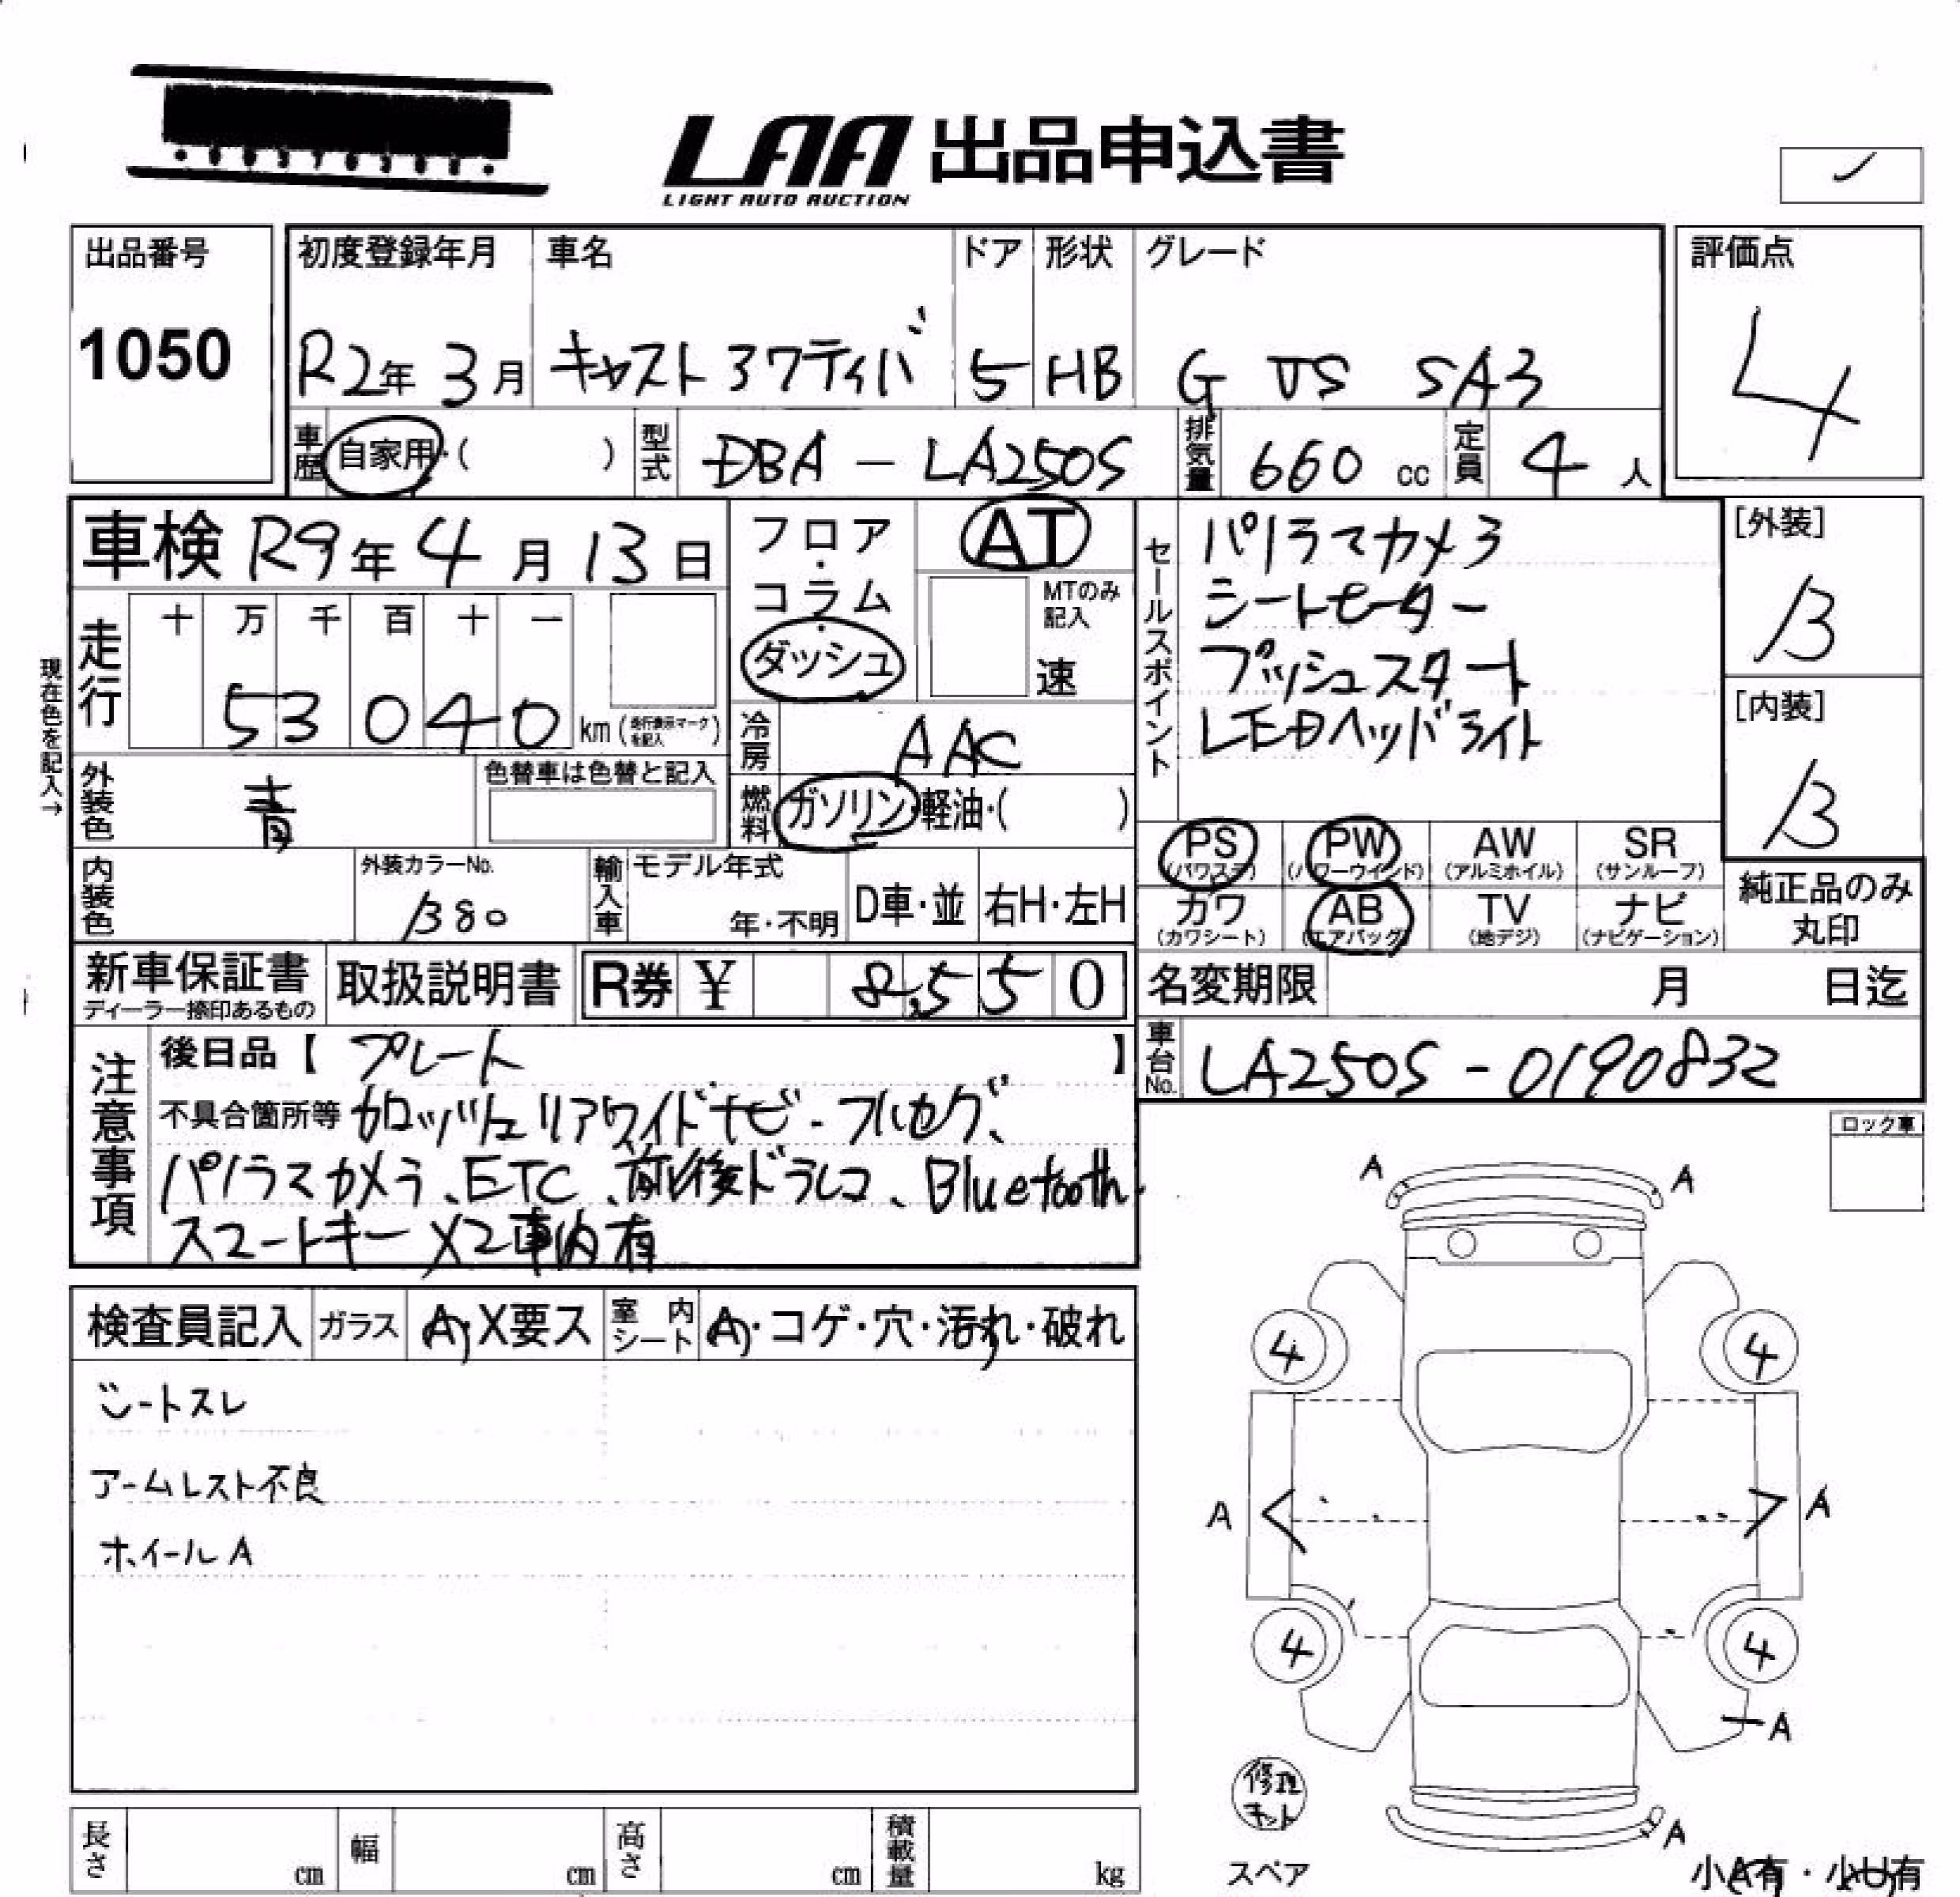 LAA 出品申込書
LIGHT AUTO AUCTION
出品番号
1050
初度登録年月 車名 ドア 形状 グレード
R2年 3月 キャストアクティバ 5 HB G VS SA3
評価点
4
車歴 自家用・( ) 型式 DBA - LA250S 排気量 660 cc 定員 4 人
車検 R9年 4月 13日
フロア・コラム・ダッシュ
AT
MTのみ記入
速
セールスポイント
パノラマカメラ
シートヒーター
プッシュスタート
LEDヘッドライト
[外装]
B
[内装]
B
現在色を記入→
走行 十 万 千 百 十 一
53040 km (走行表示マークを記入)
冷房 AAC
外装色 青 色替車は色替と記入
燃料 ガソリン・軽油・( )
PS (パワステ) PW (パワーウインド) AW (アルミホイル) SR (サンルーフ)
カワ (カワシート) AB (エアバッグ) TV (地デジ) ナビ (ナビゲーション)
純正品のみ
丸印
内装色 外装カラーNo. B80 輸入車 モデル年式 年・不明 D車・並 右H・左H
新車保証書 ディーラー捺印あるもの 取扱説明書 R券 ¥ 8,550
名変期限 月 日迄
車台No. LA250S - 0190832
注意事項
後日品【 プレート 】
不具合箇所等 カロッツェリアワイドナビ-フルセグ、
パノラマカメラ、ETC、前後ドラレコ、Bluetooth、
スマートキー X2車内有
ロック車
検査員記入 ガラス A・X要ス 室内シート A・コゲ・穴・汚れ・破れ
シートスレ
アームレスト不良
ホイールA
A A
4 4
A A
4 4
A
修理キット
A
スペア
小A有・小U有
長さ cm 幅 cm 高さ cm 積載量 kg